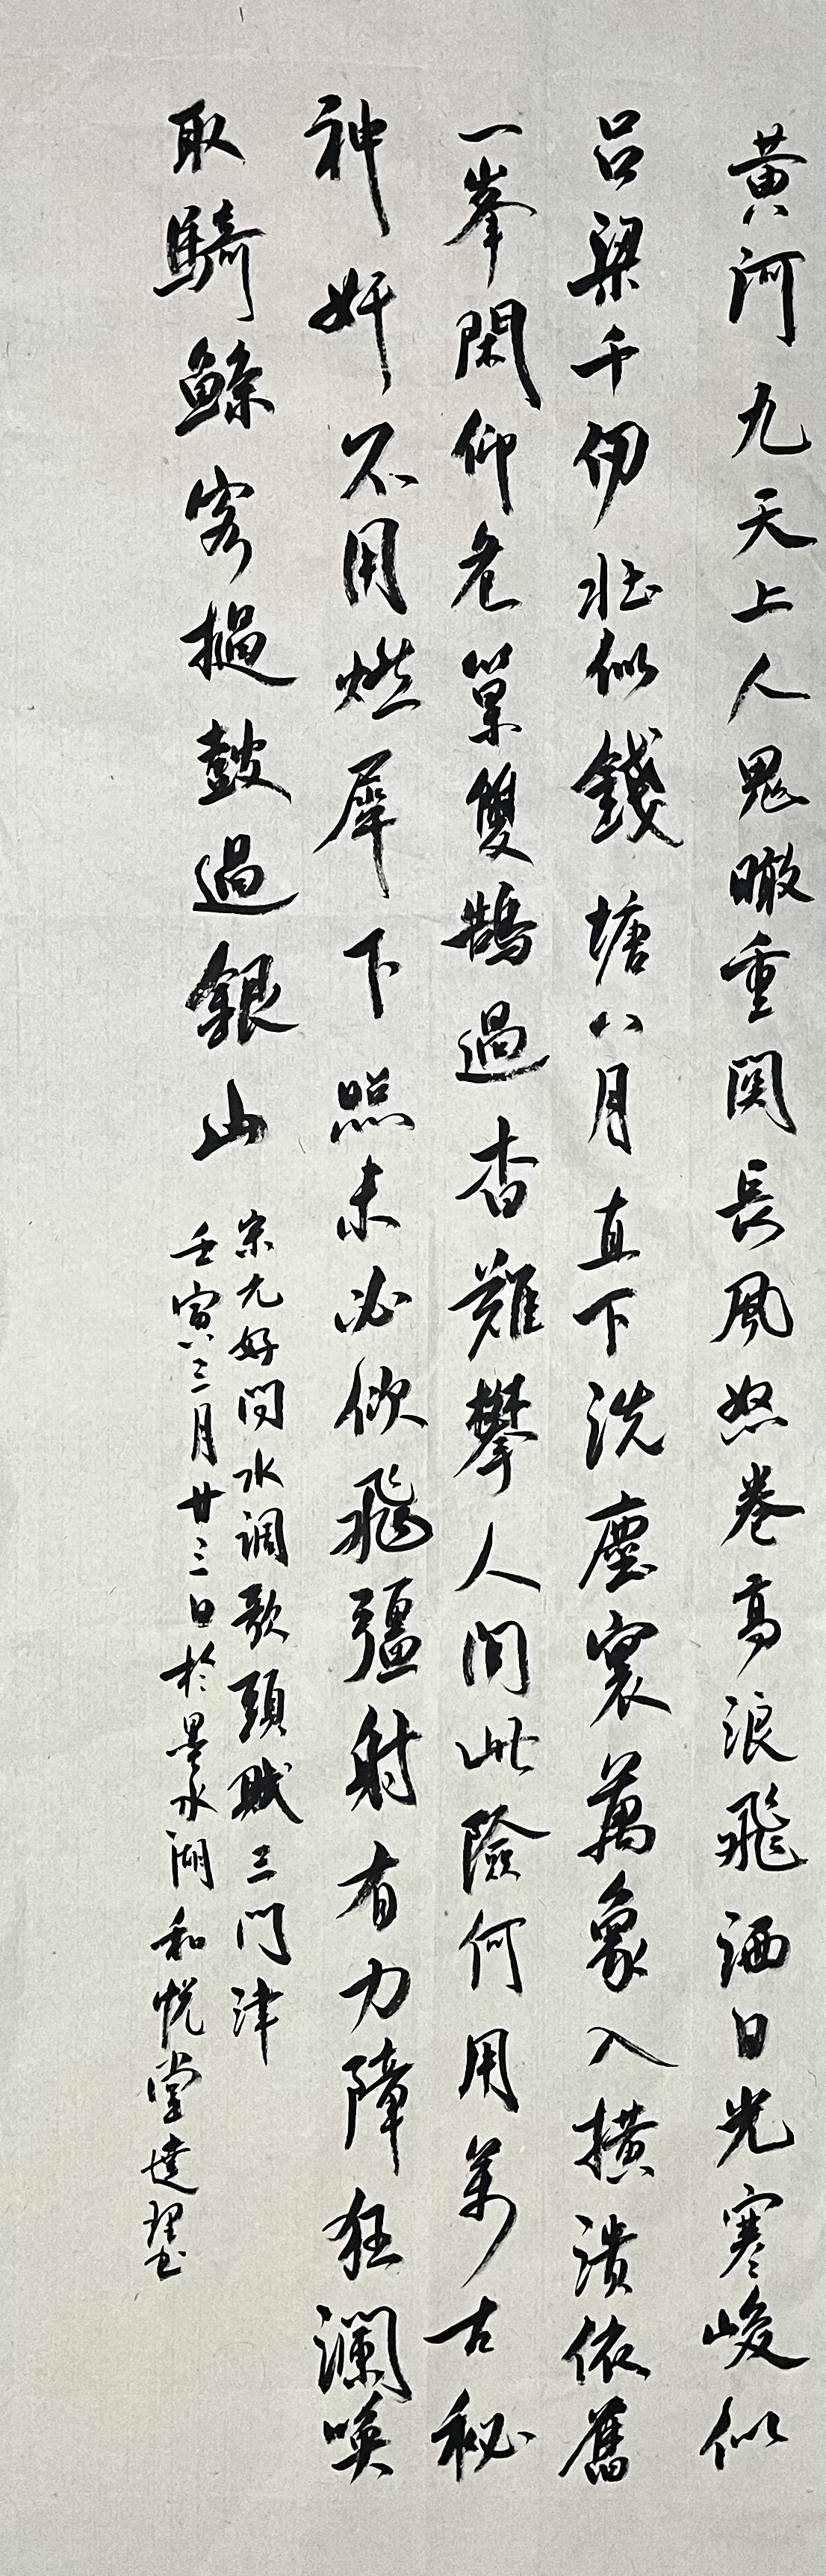 黄河九天上人鬼瞰重関長風怒卷高浪飛洒日光寒峻似
吕梁千仞壯似錢塘八月直下洗塵寰萬象入橫潰依舊
一峯閑仰危巢雙鵠過杳難攀人间此險何用萬古秘
神奸不用燃犀下照未必佽飛彊射有力障狂瀾唤
取騎鯨客撾鼓過銀山
宋元好问水调歌頭賦三門津
壬寅三月廿三日於墨水湖和悦堂達理书